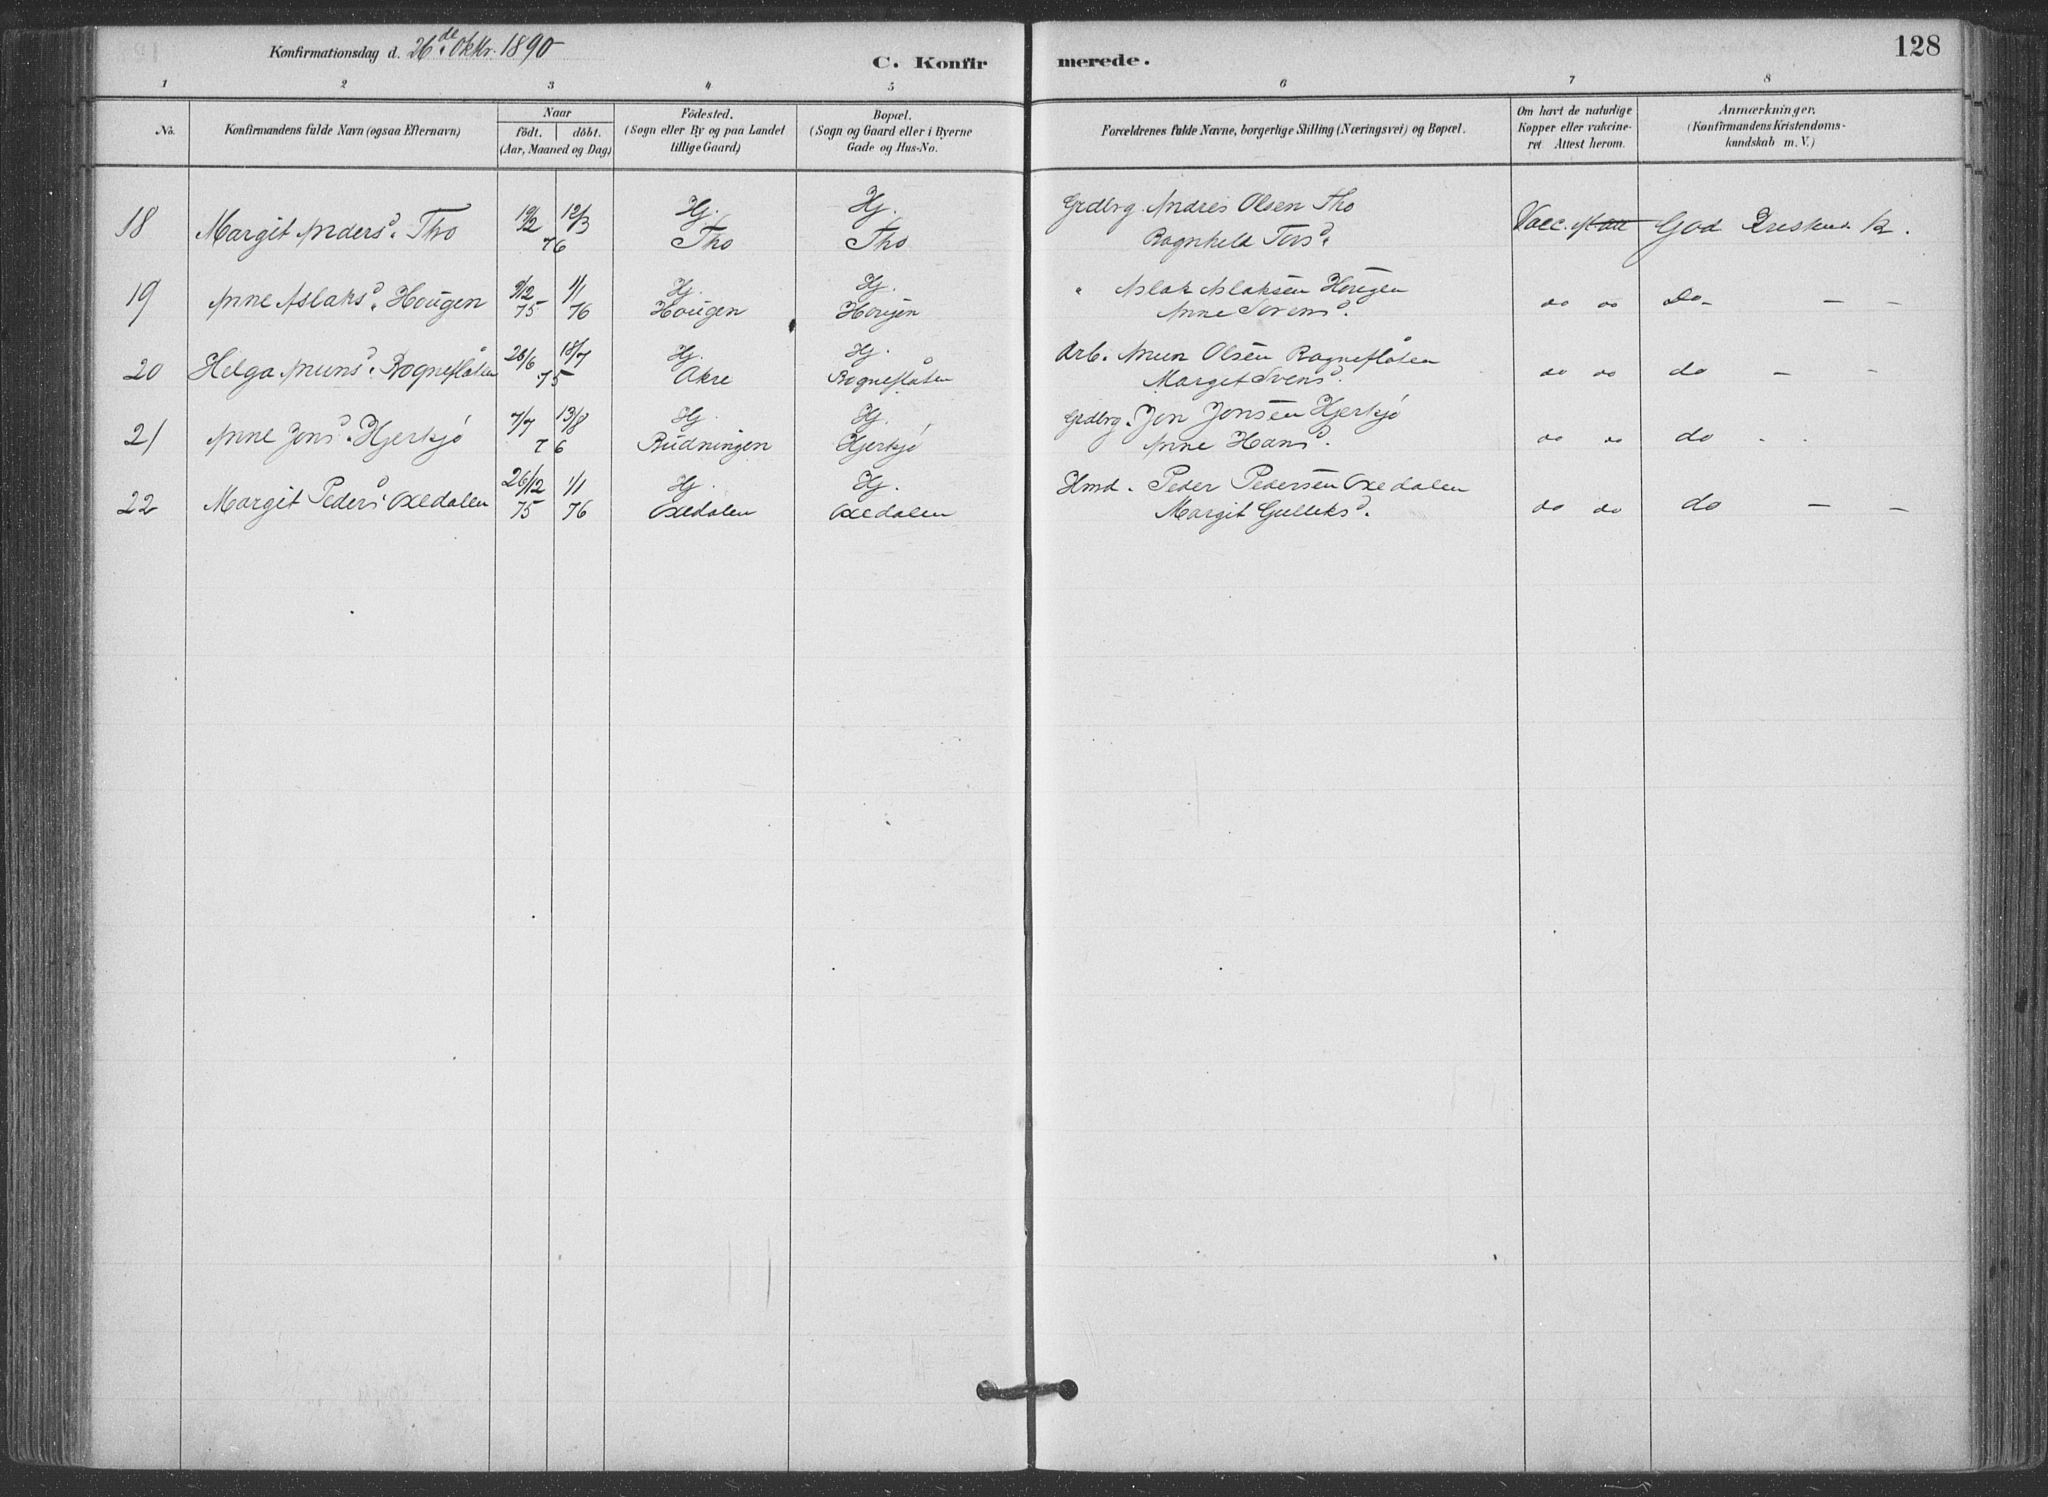 Konfirmationsdag d. 26de Oktbr. 1890
C. Konfirmerede.
128
1 2 3 4 5 6 7 8
No.
Konfirmandens fulde Navn (ogsaa Efternavn)
Naar
födt. döbt.
(Aar, Maaned og Dag)
Födested.
(Sogn eller By og paa Landet
tillige Gaard)
Bopæl.
(Sogn og Gaard eller i Byerne
Gade og Hus-No.
Forældrenes fulde Navne, borgerlige Stilling (Næringsvei) og Bopæl.
Om havt de naturlige
Kopper eller vakcine-
ret Attest herom.
Anmærkninger.
(Konfirmandens Kristendoms-
kundskab m. V.)
18 Margit Andersd. Tho 19/2 12/3 76 Hj. Tho Hj. Tho Grdbrg. Andres Olsen Tho
Ragnhild Torsd. Vacc. God Kristend. K.
19 Anne Aslaksd. Hougen 9/12 75 1/1 76 Hj. Hougen Hj. Hougen " Aslak Aslaksen Hougen
Anne Svensd. do do Do - -
20 Helga Amunsd. Rogneflåten 26/6 18/7 75 Hj. Akre Hj. Rogneflåten Arb. Amun Olsen Rognefloten
Margit Svensd. do do do - -
21 Anne Jonsd. Hjerkjø 7/7 13/8 76 Hj. Rudningen Hj. Hjerkjø Grdbrg. Jon Jonsen Hjerkjø
Anne Hansd. do do do . .
22 Margit Pedersd. Oxedalen 26/12 75 1/1 76 Hj. Oxedalen Hj. Oxedalen Hmd. Peder Pedersen Oxedalen
Margit Gulleksd. do do do - -